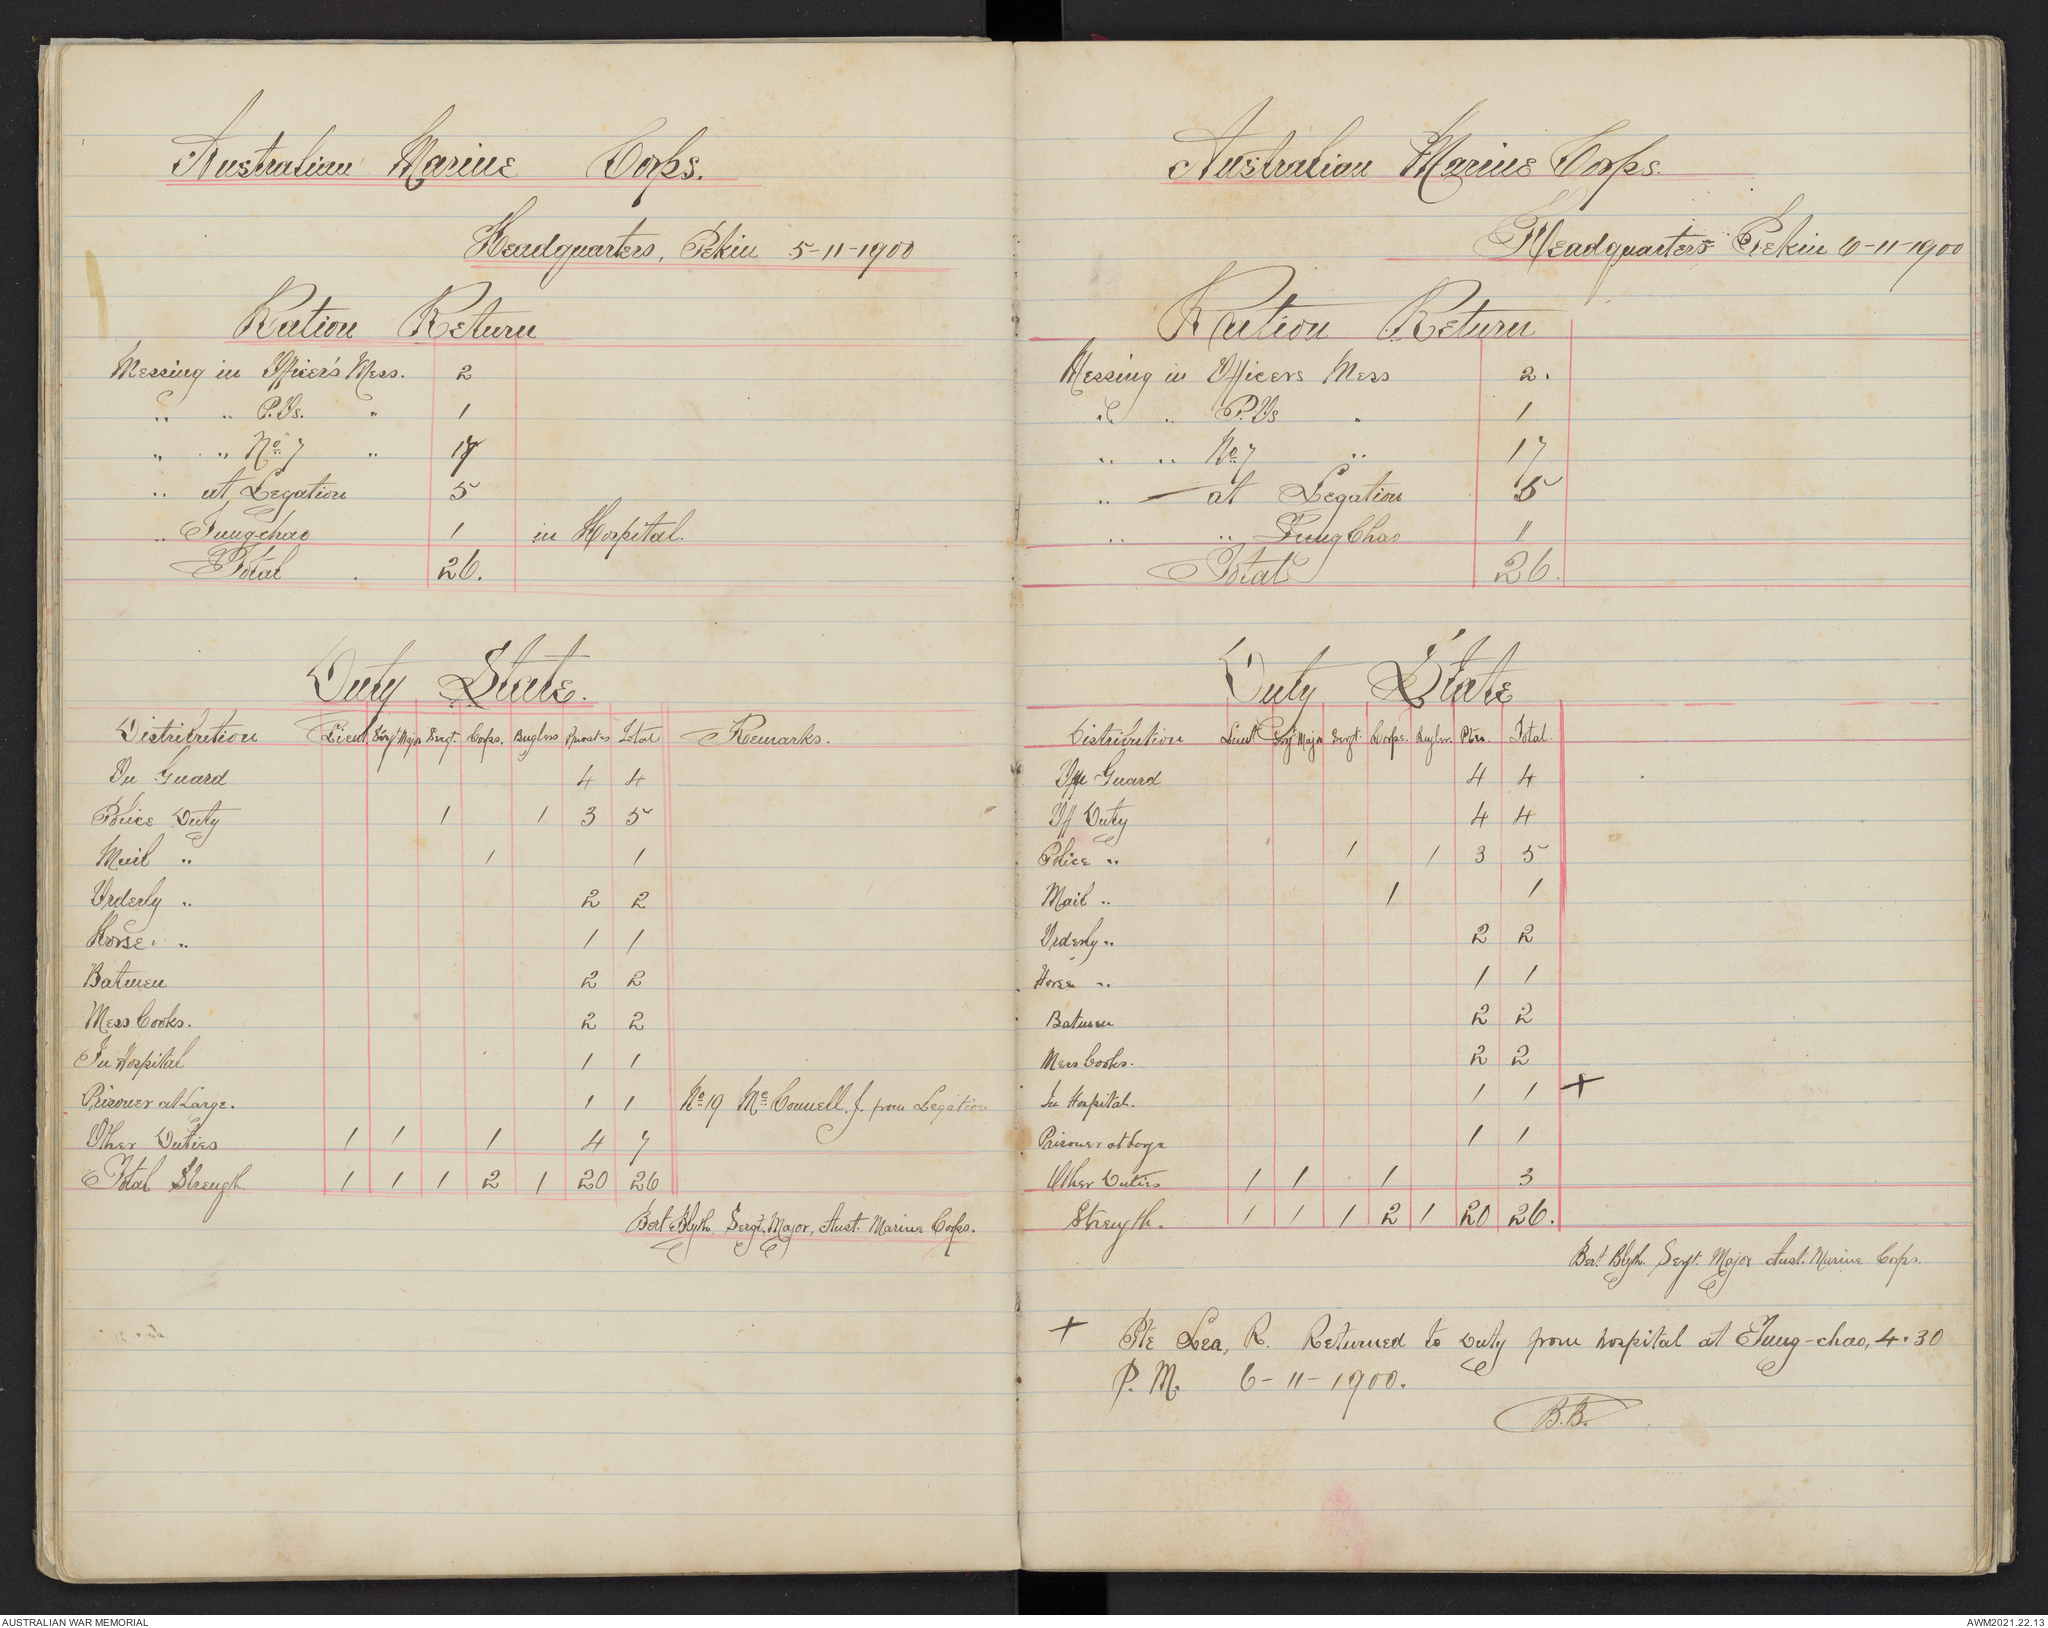 Australian Marine Corps.
Headquarters, Pekin 5-11-1900
Ration Return
Messing in Officer's Mess. 2
" " P.Os. " 1
" " No 7 " 17
" at Legation 5
" Tungchao 1 in Hospital.
Total 26.
Duty State.
Distribution Lieut Sergt Major Sergt. Corps. Buglers Privates Total Remarks.
On Guard 4 4
Police Duty 1 1 3 5
Mail " 1 1
Orderly " 2 2
Horse " 1 1
Batmen 2 2
Mess Cooks. 2 2
In Hospital 1 1
Prisoner at Large. 1 1 No 19 McConnell. J. from Legation
Other Duties 1 1 1 4 7
Total Strength 1 1 1 2 1 20 26
Bert Blyth, Sergt. Major, Aust. Marine Corps.
Australian Marine Corps.
Headquarters Pekin 6-11-1900
Ration Return
Messing in Officers Mess 2.
" " P.Os " 1
" " No 7 " 17
" — at Legation 5
" " Tung Chao 1
Total 26.
Duty State
Distribution Lieut Sergt Major Sergt. Corps. Bugler. Ptes. Total.
On Guard 4 4
Off Duty 4 4
Police " 1 1 3 5
Mail " 1 1
Orderly " 2 2
Horse " 1 1
Batmen 2 2
Mess Cooks. 2 2
In Hospital. 1 1 +
Prisoner at Large 1 1
Other Duties 1 1 1 3
Strength. 1 1 1 2 1 20 26.
Bert Blyth. Sergt. Major Aust. Marine Corps.
+ Pte Lea, R. Returned to Duty from hospital at Tung-chao, 4.30
P.M. 6-11-1900.
B.B.
AUSTRALIAN WAR MEMORIAL
AWM2021.22.13